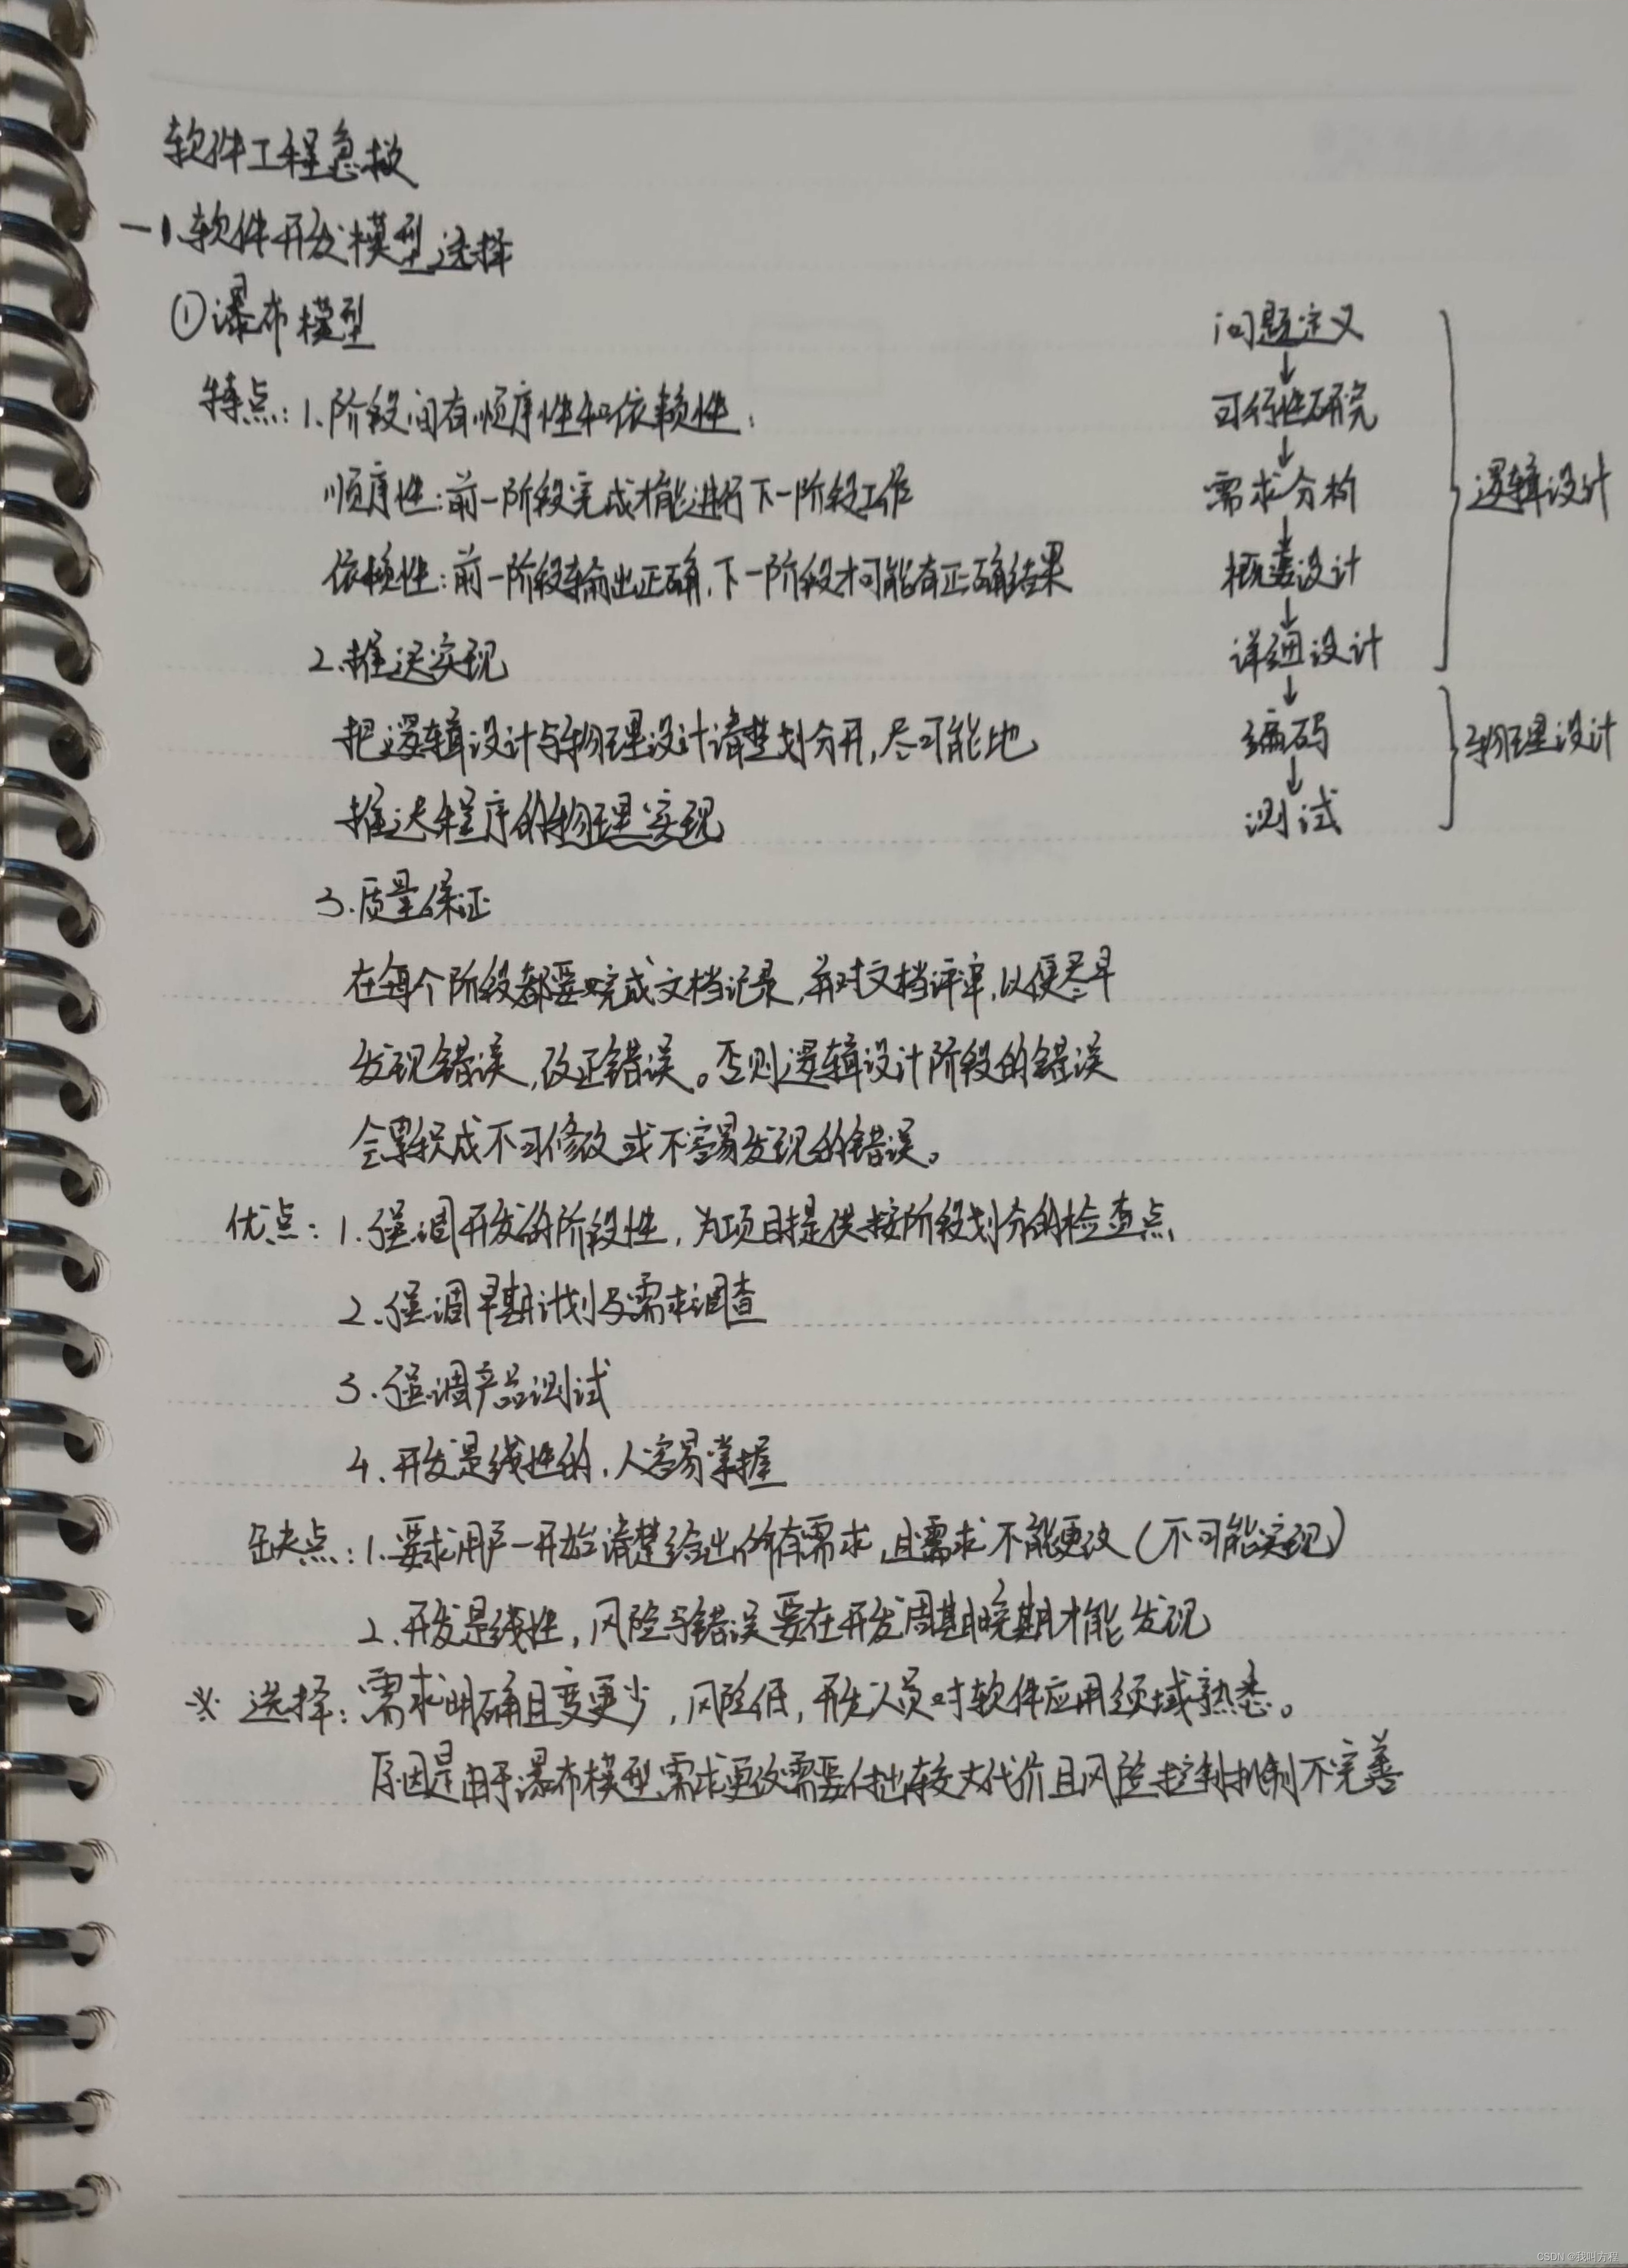 软件工程急救
一1.软件开发模型选择
①瀑布模型
特点:1.阶段间有顺序性和依赖性:
顺序性:前一阶段完成才能进行下一阶段工作
依赖性:前一阶段输出正确,下一阶段才可能有正确结果
2.推迟实现
把逻辑设计与物理设计清楚划分开,尽可能地
推迟程序的物理实现
3.质量保证
在每个阶段都要完成文档记录,并对文档评审,以便尽早
发现错误,改正错误。否则逻辑设计阶段的错误
会累积成不可修改或不容易发现的错误。
优点:1.强调开发的阶段性,为项目提供按阶段划分的检查点
2.强调早期计划与需求调查
3.强调产品测试
4.开发是线性的,人容易掌握
缺点:1.要求用户一开始清楚给出所有需求,且需求不能更改(不可能实现)
2.开发是线性,风险与错误要在开发周期晚期才能发现
※ 选择:需求明确且变更少,风险低,开发人员对软件应用领域熟悉。
原因是由于瀑布模型需求更改需要付出较大代价且风险控制机制不完善
问题定义
↓
可行性研究
↓
需求分析
↓
概要设计
↓
详细设计
↓
编码
↓
测试
逻辑设计
物理设计
CSDN @我叫方程